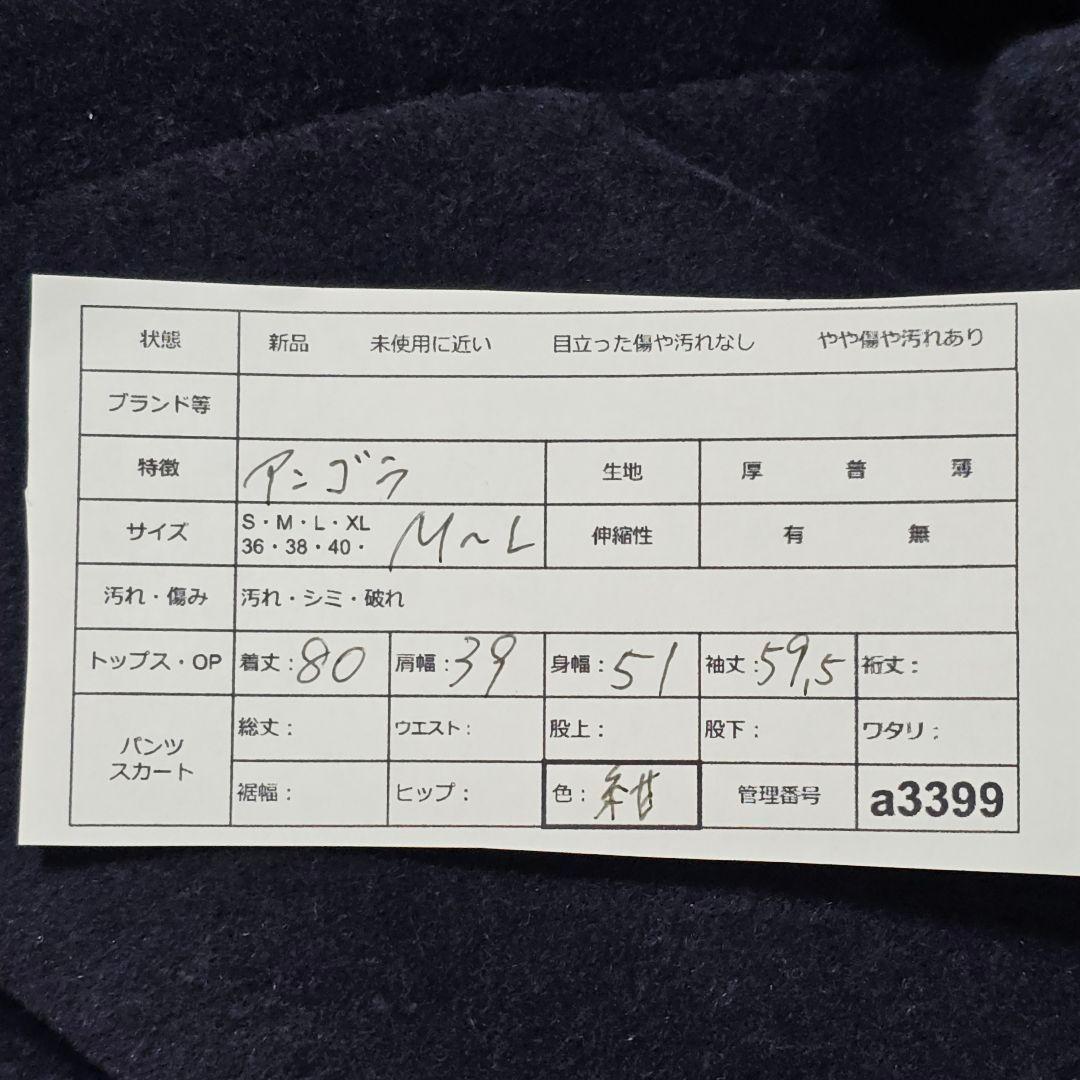 状態 新品 未使用に近い 目立った傷や汚れなし やや傷や汚れあり
ブランド等
特徴 アンゴラ 生地 厚 普 薄
サイズ S・M・L・XL
36・38・40・ M～L 伸縮性 有 無
汚れ・傷み 汚れ・シミ・破れ
トップス・OP 着丈：80 肩幅：39 身幅：51 袖丈：59,5 裄丈：
パンツ
スカート
総丈： ウエスト： 股上： 股下： ワタリ：
裾幅： ヒップ： 色：紺 管理番号 a3399